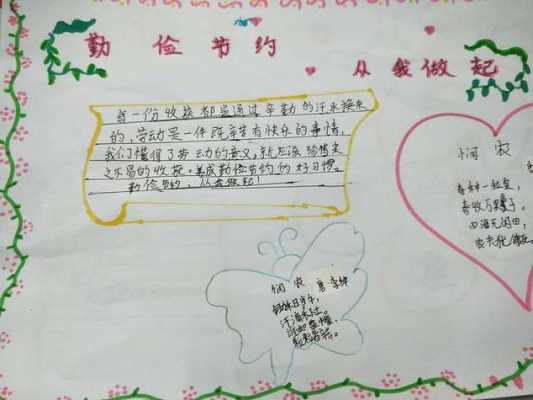 勤俭节约
从我做起
每一份收获都是通过辛勤的汗水换来
的，劳动是一件既辛苦有快乐的事情，
我们懂得了劳动的意义，就应该珍惜来
之不易的收获。养成勤俭节约的好习惯。
勤俭节约，从我做起！
悯农
春种一粒粟，
秋收万颗子。
四海无闲田，
农夫犹
悯农 唐 李绅
锄禾日当午，
汗滴禾下土。
谁知盘中餐，
粒粒皆辛苦。